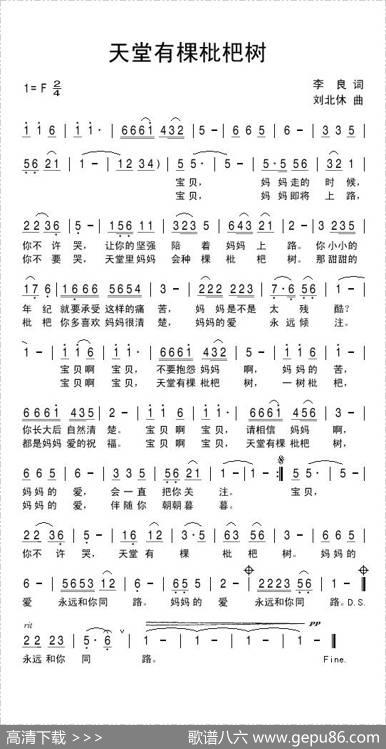 天堂有棵枇杷树
1=F 2/4
李 良 词
刘北休 曲
1 1 6 | 1 1· | 6661 432 | 5 - | 665 | 6 - | 335 |
56 21 | 1 - | 12 34) | 5 5· | 5 - | 5·5 56 | 32 1 |
宝贝， 妈妈走的 时 候，
宝贝， 妈妈即将 上 路，
22 36 | 5 - | 156 11 | 323 5 | 643 32 | 2 - 3 | 3235 |
你不许 哭， 让你的坚强 陪 着 妈妈 上 路。 你小小的
你不要 哭， 天堂里妈妈 会种 棵 枇 杷 树。 那甜甜的
176 | 1 666 1665 | 5654 | 3 - | 335 335 | 7·6 56 | 2 - |
年 纪 就要承受 这样的痛 苦， 妈 妈是不是 太 残 酷？
枇 杷 你多喜欢 妈妈很清 楚， 妈妈的 爱 永 远 倾 注。
1 - | 1 1 6 | 1 1· | 6661 432 | 5 - | 665 | 6 - |
宝贝啊 宝贝， 不要抱怨 妈妈 啊， 妈妈的 苦，
宝贝啊 宝贝， 天堂有棵 枇杷 树， 一树枇 杷，
6661 435 | 2 - | 1 1 6 | 1 1· | 6661 456 | 3 - |
你长大后 自然清 楚。 宝贝啊 宝贝， 请相信 妈妈 啊，
都是妈妈 爱的祝 福。 宝贝啊 宝贝， 天堂有棵 枇杷 树，
665 | 6 - | 335 | 56 21 | 1 - | 1 - :‖ 5 5· | 5 - |
妈妈的 爱， 会一直 把你关 注。 宝贝，
妈妈的 爱， 伴随你 朝朝暮 暮。
22 36 | 5 - | 16 1 | 3· 23 | 5 43 | 2 - | 335 |
你不许 哭， 天堂 有 棵 枇 杷 树。 妈妈的
6 - | 5653 12 | 6 - | 655 | 2 - | 2223 56 | 1 - |
爱 永远和你同 路。 妈妈的 爱 永远和你同 路。D.S.
rit pp
22 23 | 5·6 | 1 - | 1 - | 1 - | 1 - ‖
永远和你 同 路。 Fine.
高清下载 >>>
歌谱八六 www.gepu86.com